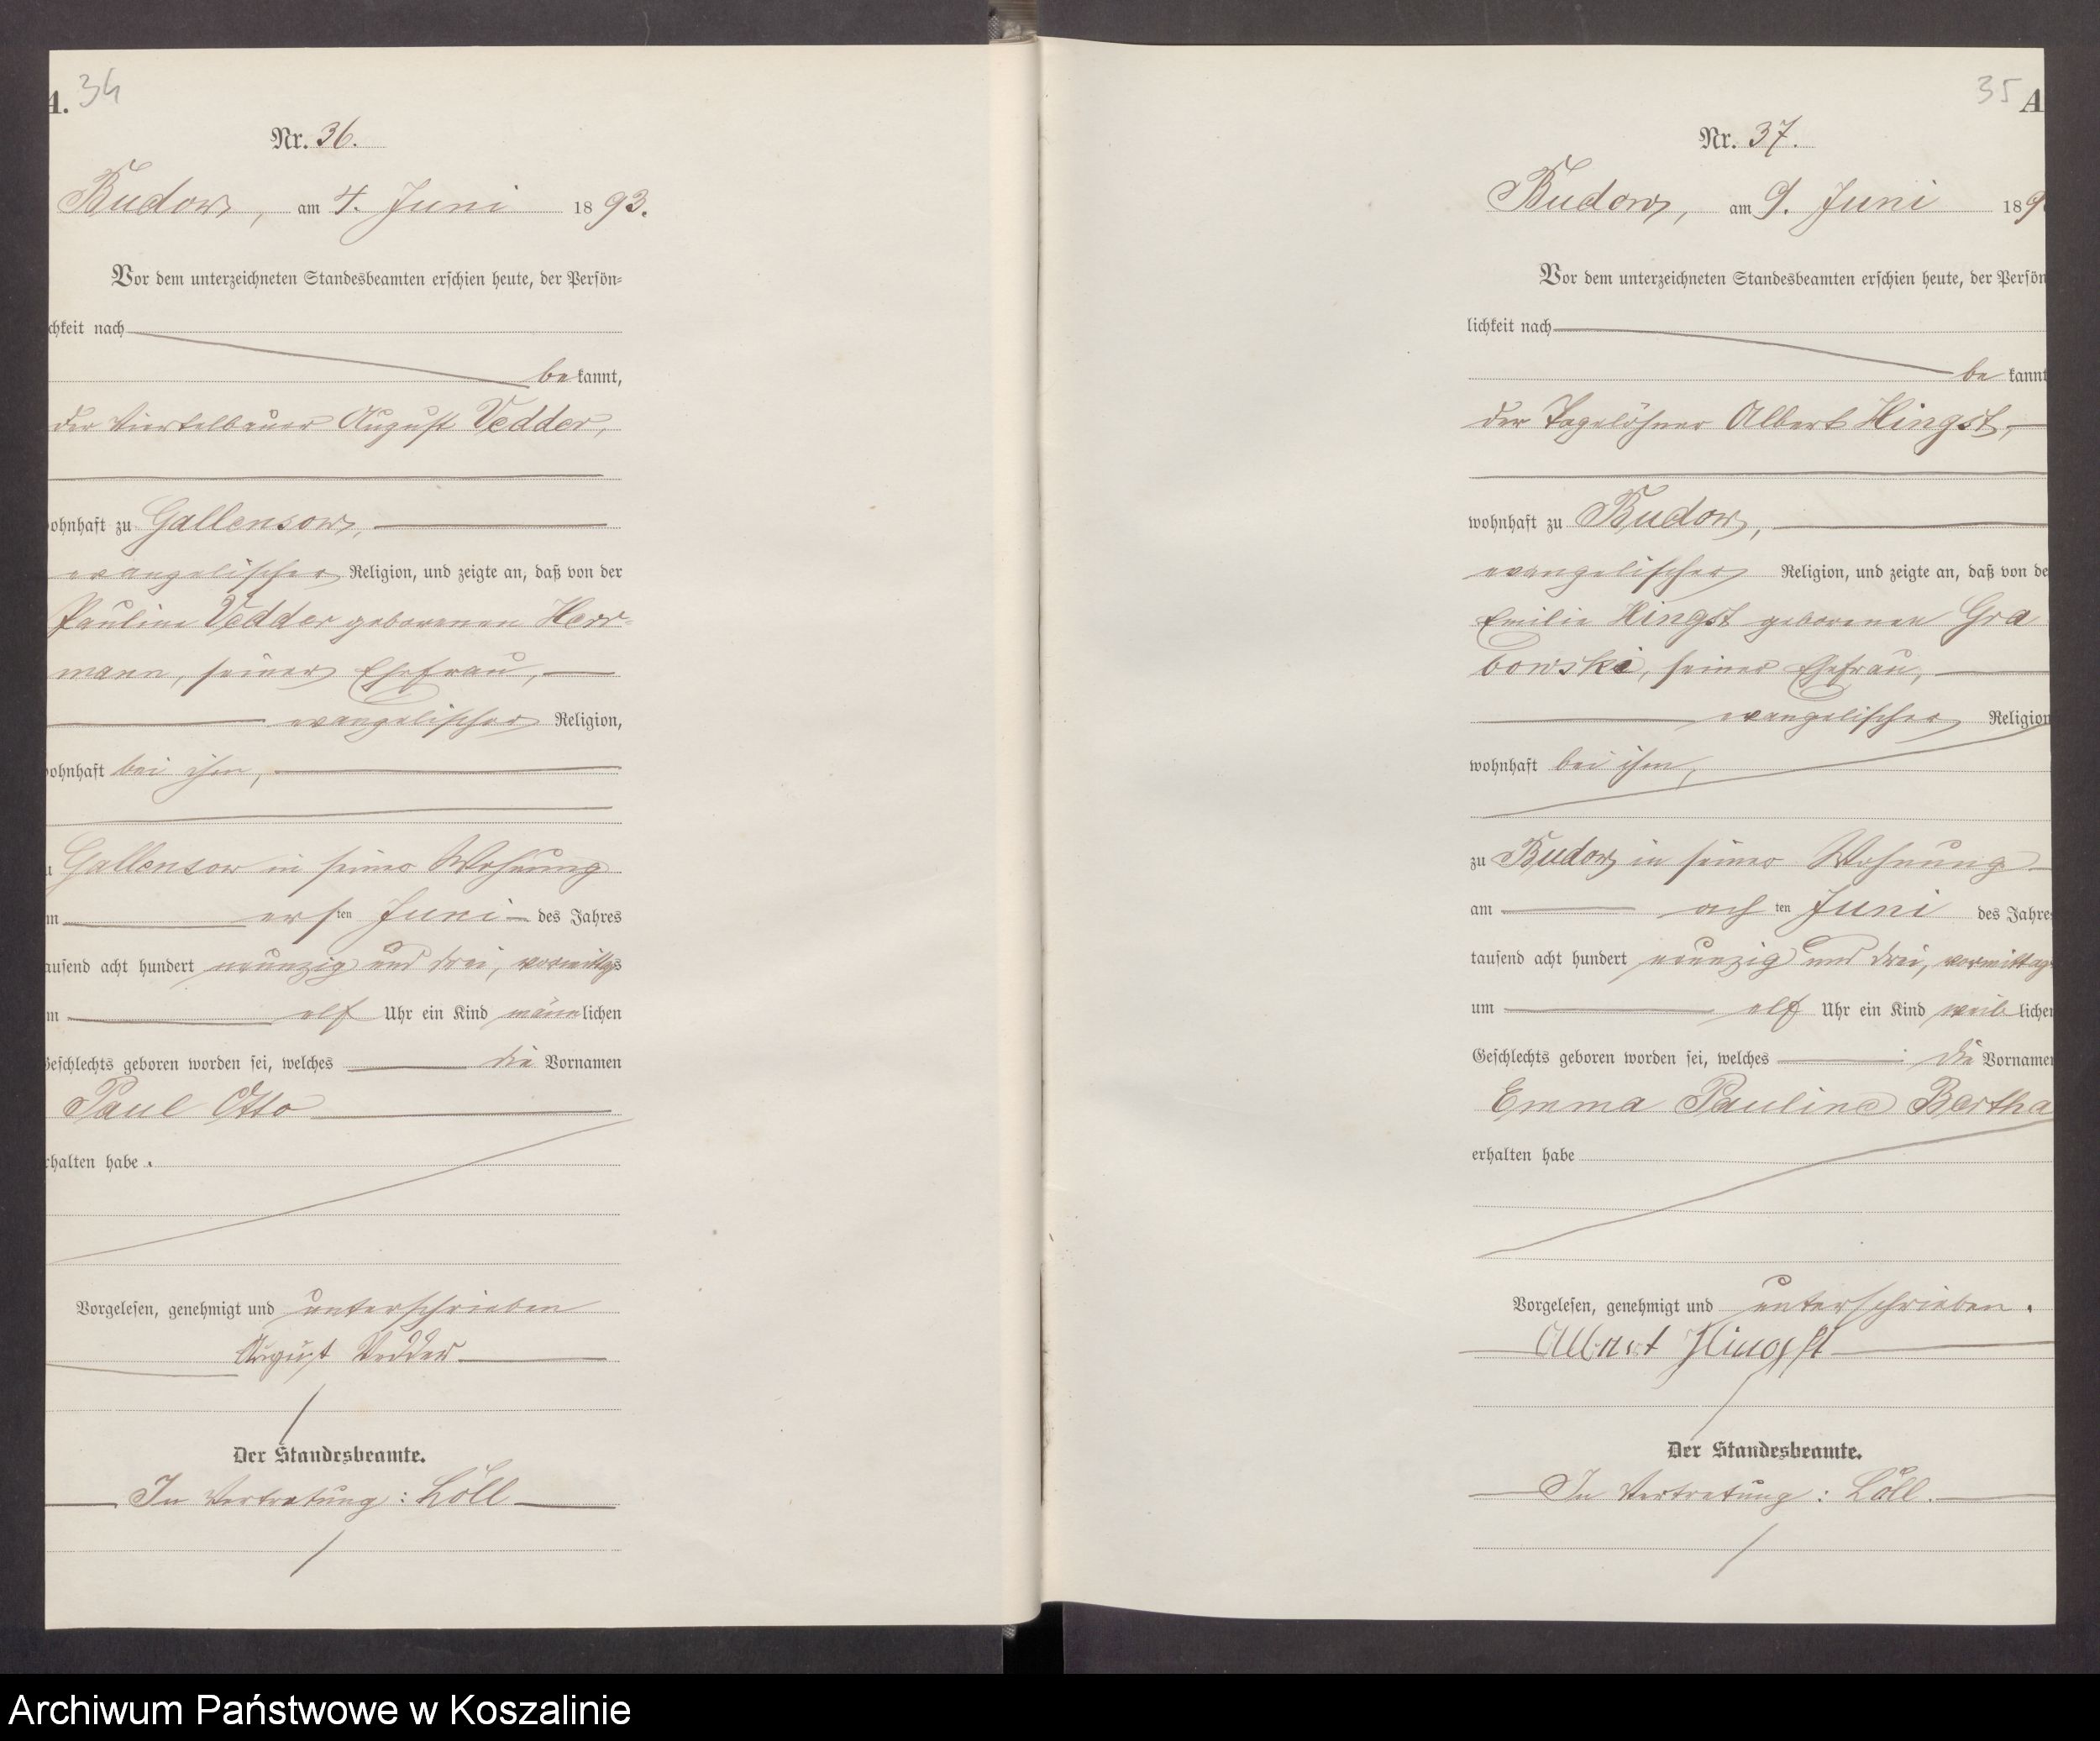 A. 34
Nr. 36.
Budow, am 4. Juni 1893.
Vor dem unterzeichneten Standesbeamten erschien heute, der Persön-
chkeit nach
bekannt,
der Viertelbauer August Vedder,
ohnhaft zu Gallensow,
evangelischer Religion, und zeigte an, daß von der
Pauline Vedder geborenen Herr-
mann, seiner Ehefrau,
evangelischer Religion,
ohnhaft bei ihm,
u Gallensow in seiner Wohnung
m ersten Juni des Jahres
ausend acht hundert neunzig und drei, vormittags
m elf Uhr ein Kind männlichen
Geschlechts geboren worden sei, welches die Vornamen
Paul Otto
rhalten habe.
Vorgelesen, genehmigt und unterschrieben
August Vedder
Der Standesbeamte.
In Vertretung: Löll
35 A
Nr. 37.
Budow, am 9. Juni 189
Vor dem unterzeichneten Standesbeamten erschien heute, der Persön
lichkeit nach
bekannt
der Tagelöhner Albert Hingst,
wohnhaft zu Budow,
evangelischer Religion, und zeigte an, daß von de
Emilie Hingst geborenen Gra
bowski, seiner Ehefrau,
evangelischer Religion
wohnhaft bei ihm,
zu Budow in seiner Wohnung
am achten Juni des Jahres
tausend acht hundert neunzig und drei, vormittags
um elf Uhr ein Kind weiblichen
Geschlechts geboren worden sei, welches die Vornamen
Emma Pauline Bertha
erhalten habe
Vorgelesen, genehmigt und unterschrieben.
Albert Hingst
Der Standesbeamte.
In Vertretung: Löll.
Archiwum Państwowe w Koszalinie